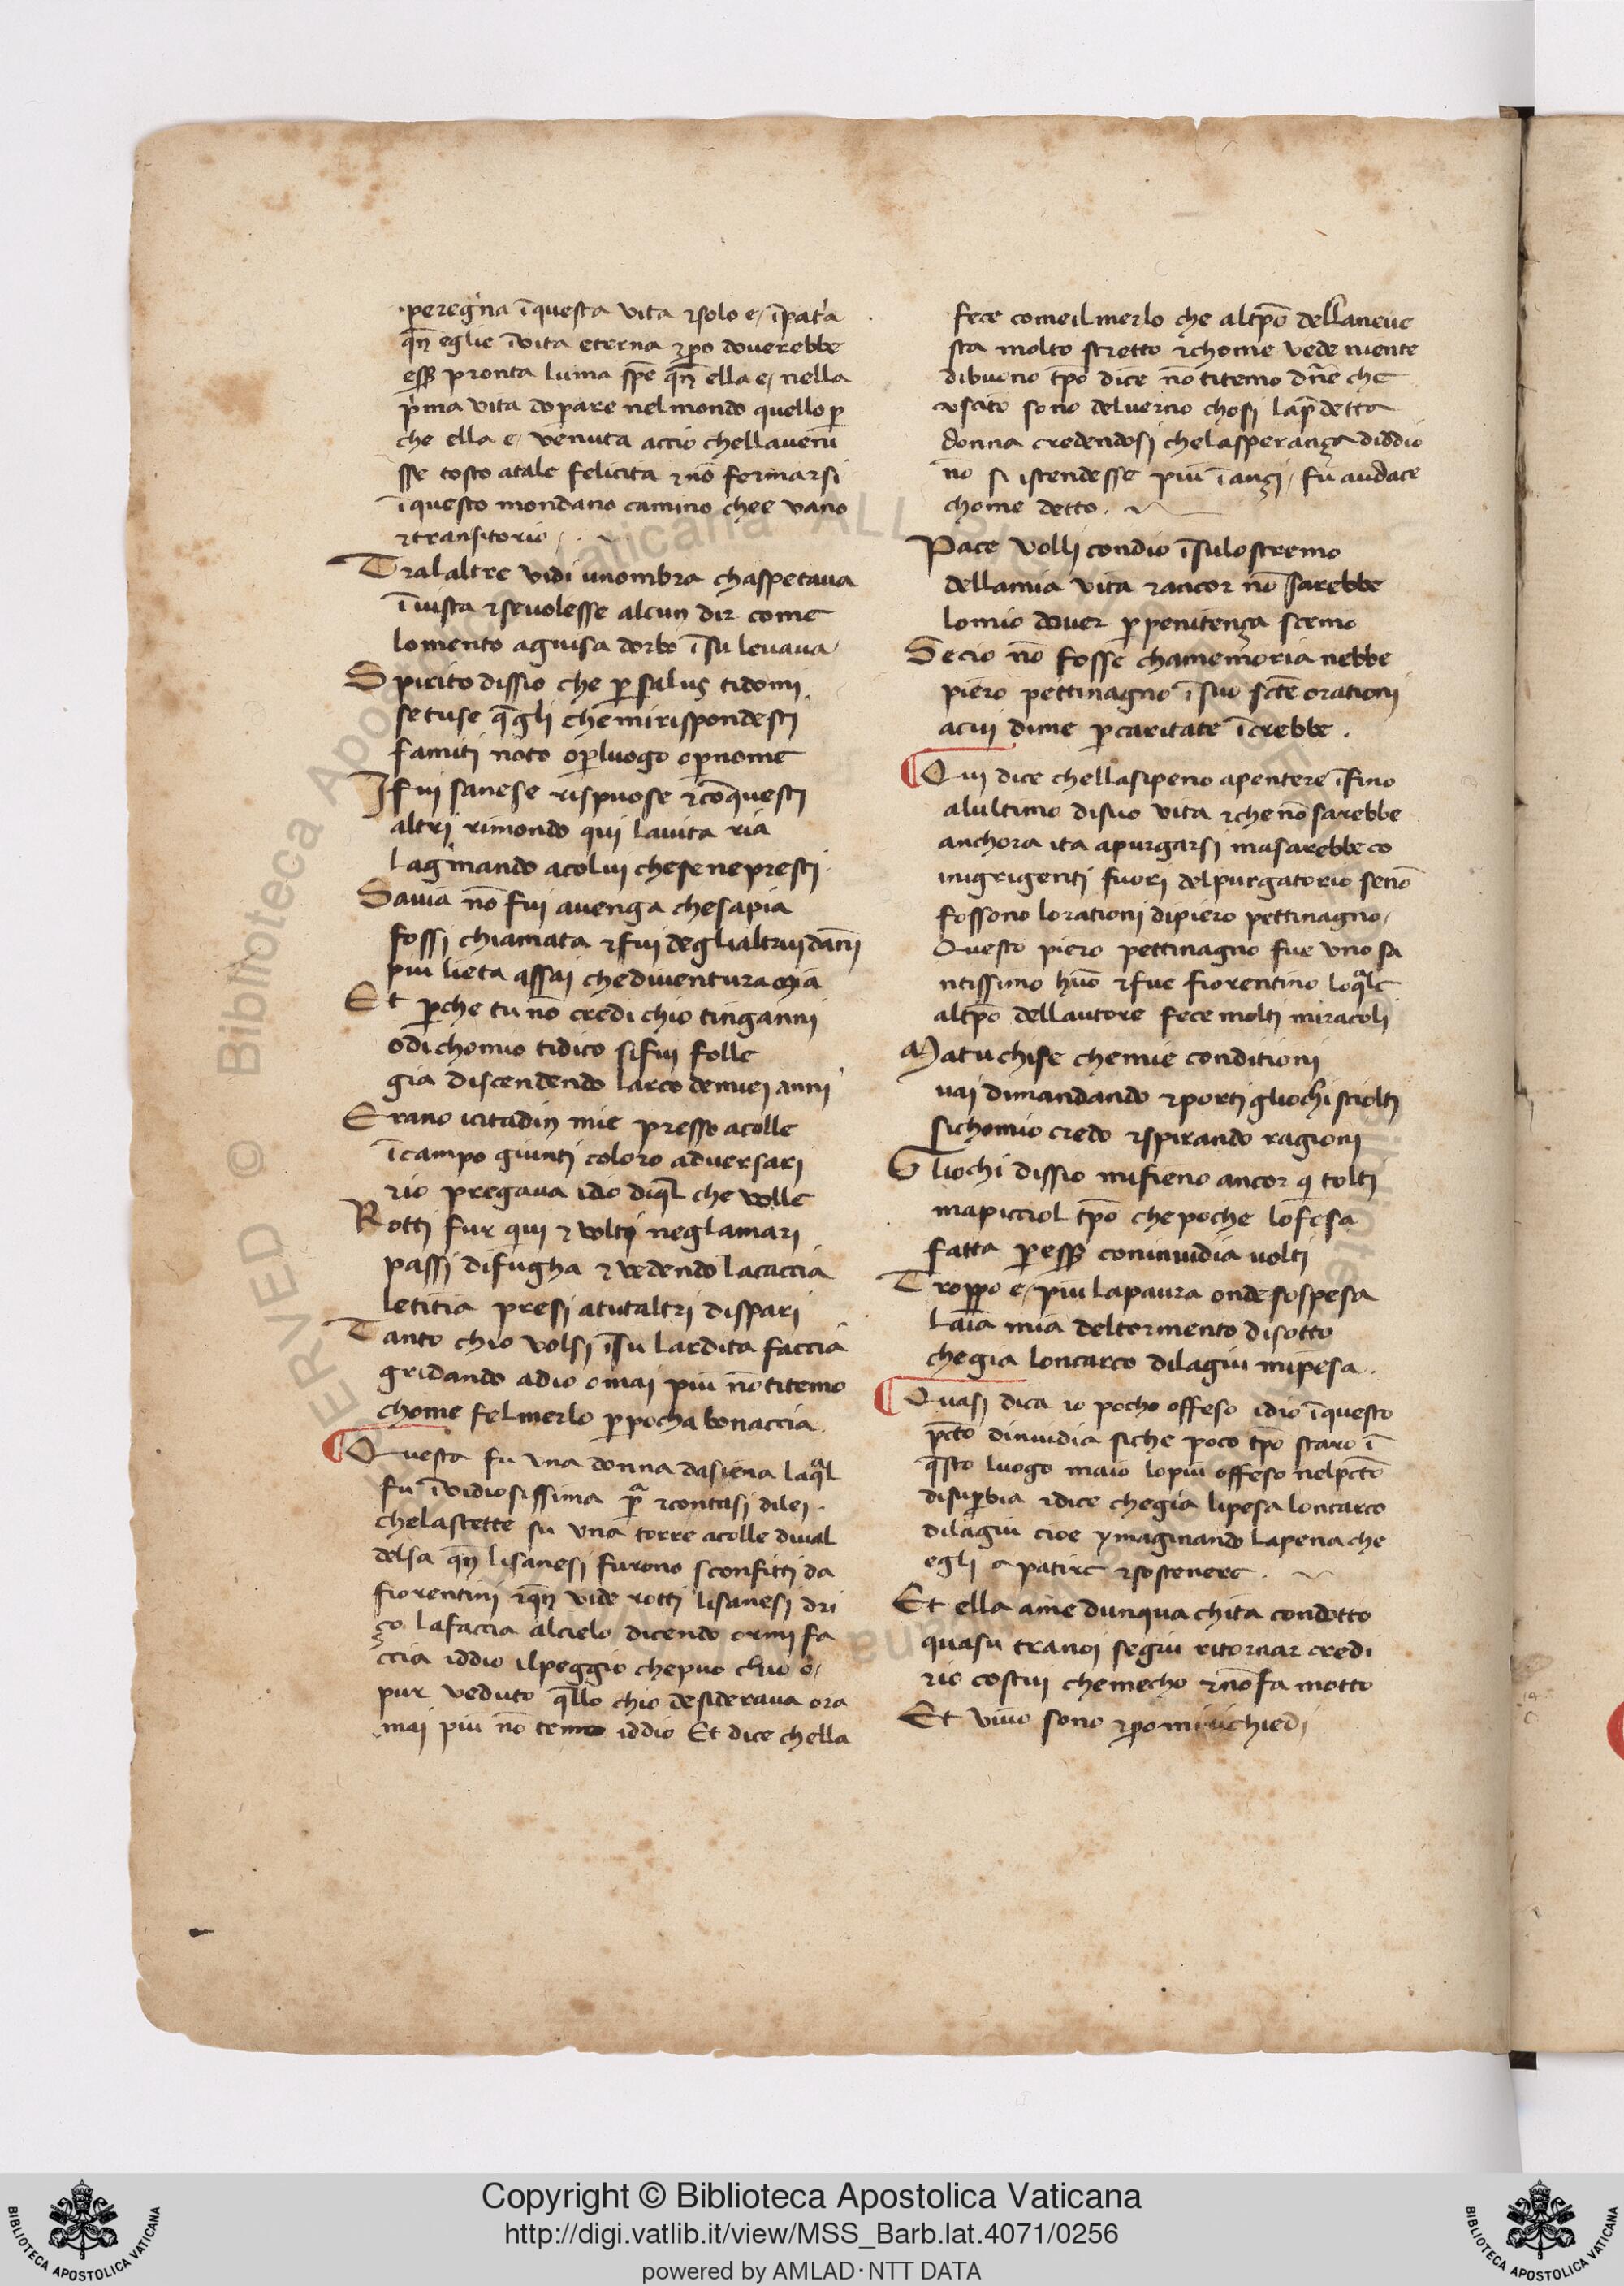 peregina ī questa vita ⁊ solo e, ī patͥa
qn̄ eglie ī vita eterna ⁊ ꝑo doverebbe
ess̄ pronta lūma sp̄e qn̄ ella e, nella
pͥma vita doꝑare nel mondo quello ꝑ
che ella e, venuta accio chellaveni
sse tosto atale felicita ⁊ nō fermarsi
ī questo mondano camino chee vano
⁊ transitorio
Tralaltre vidi unombra chaspetava
ī vista ⁊ sevolesse alcun dir come
lomento aguisa dorbo ī su levava
Spirito dissio che ꝑ salus tidomi
setuse q̄gli chemirispondesti
famiti noto oꝑluogo oꝑnome
Ifui sanese rispuose ⁊ cō questi
altri rimondo qui lavita ria
lagͥmando acolui chesenepresti
Savia nō fui avenga chesapia
fossi chiamata ⁊ fui deglialtrui dāni
piu lieta assai chediventura mia
Et ꝑche tu nō credi chio tinganni
odi chomio tidico sifui folle
gia discendendo larco demiei anni
Erano icitadin mie presso acolle
ī campo giunti coloro adversari
⁊io pregava idio diq̄l che volle
Rotti fur qui ⁊ volti neglamari
passi difugha ⁊ vedendo lacaccia
letitia presi atutaltri dispari
Tanto chio volsi ī su lardita faccia
gridando adio omai piu nō titemo
chome fel merlo ꝑ pocha bonaccia
Questa fu una donna dasiena laq̄l
fu ī vidiosissima ⁊ contasi dilei
chelastette su una torre acolle dival
delsa qn̄ lisanesi furono sconfitti da
fiorentini ⁊ qn̄ vide rotti lisanesi dri
ço lafaccia alcielo dicendo ormi fa
ccia iddio ilpeggio chepuo chio o,
pur veduto q̄llo chio desiderava ora
mai piu nō temo iddio Et dice chella
fece comeilmerlo che altp̄o dellaneve
sta molto stretto ⁊ chome vede niente
dibuono tp̄o dice nō titemo dn̄e che
uscito sono delverno chosi lap̄detta
donna credendosi chelasperança diddio
nō si istendesse piu ī ançi, fu audace
chome detto.
Pace volli condio ī sulostremo
dellamia vita ⁊ ancor nō sarebbe
lomio dover ꝑ penitença scemo
Secio nō fosse chamemoria nebbe
piero pettinagno ī suo sc̄te orationi
acui dime ꝑ caritate ī crebbe.
Qui dice chellasipeno apentere ī fino
alultimo disuo vita ⁊ che nō sarebbe
anchora ita apurgarsi masarebbe co
inigrigenti fuori delpurgatorio senō
fossono lorationi dipiero pettinagno,
Questo piero pettinagno fue uno sa
ntissimo huō ⁊ fue fiorentino loq̄le
altp̄o dellautore fece molti miracoli
Matuchise chemie conditioni
vai dimandando ⁊ porti gliochi sciolti
sichomio credo ⁊ spirando ragioni
Gliochi dissio mifieno ancor qͥ tolti
mapicciol tp̄o chepoche lofesa
fatta ꝑ ess̄ coninvidia volti
Troppo e, piu lapaura ondesospesa
laīa mia deltormento disotto
chegia loncarco dilagiu mipesa.
Quasi dica io pocho offeso idio ī questo
pct̄o dinvidia siche poco tp̄o staro ī
q̄sto luogo maio lopiu offeso nelpct̄o
disuꝑbia ⁊ dice chegia lipesa loncarco
dilagiu cioe ymaginando lapena che
egli a patire ⁊ sostenere.
Et ella ame dunqua chita condotto
quasu tranoi segiu ritornar credi
⁊io costui chemecho ⁊ nō fa motto
Et vivo sono ⁊ ꝑo mirichiedi
Copyright © Biblioteca Apostolica Vaticana
http://digi.vatlib.it/view/MSS_Barb.lat.4071/0256
powered by AMLAD·NTT DATA
BIBLIOTECA APOSTOLICA VATICANA
BIBLIOTECA APOSTOLICA VATICANA